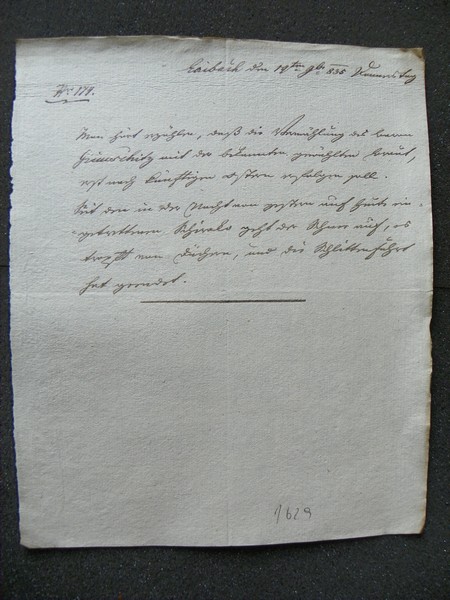 Laibach den 19ten 9be 835 Donnerstag
Nr 179.
Man hört erzählen, daß die Vermählung des Herrn
mit der bekannten gewählten Braut,
erst nach künftigen Ostern erfolgen soll.
Seit den in der Nacht von gestern auf heute ein-
getrettenen Schirako geht der Schnee auf, es
tropft von Dächern, und die Schlittenfahrt
hat geendet.
1629